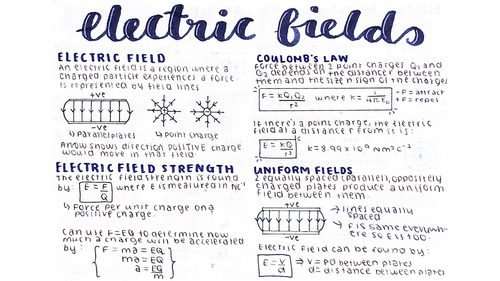 electric fields
ELECTRIC FIELD
An electric field is a region where a
charged particle experiences a force
is represented by field lines
+ve
-ve
↳ Parallel plates ↳ point charge
Arrow shows direction positive charge
would move in that field
ELECTRIC FIELD STRENGTH
The electric field strength is found
by: E = F/Q where E is measured in NC⁻¹
↳ Force per unit charge on a
positive charge.
Can use F=EQ to determine how
much a charge will be accelerated
by: F = ma = EQ
ma = EQ
a = EQ/m
COULOMB'S LAW
Force between 2 point charges Q₁ and
Q₂ depends on the distance r between
them and the size n sign of the charges
F = kQ₁Q₂/r² where k = 1/4πε₀
-F = attract
+F = repel
If there's a point charge, the electric
field at a distance r from it is:
E = kQ/r² k = 8.99 x 10⁹ Nm²C⁻²
UNIFORM FIELDS
2 equally spaced (parallel), oppositely
charged plates produce a uniform
field between them.
+ve
-ve
→ lines equally
spaced
→ F is same everywh-
ere so E is too.
Electric field can be found by:
E = V/d ⇒ V = PD between plates
d = distance between plates